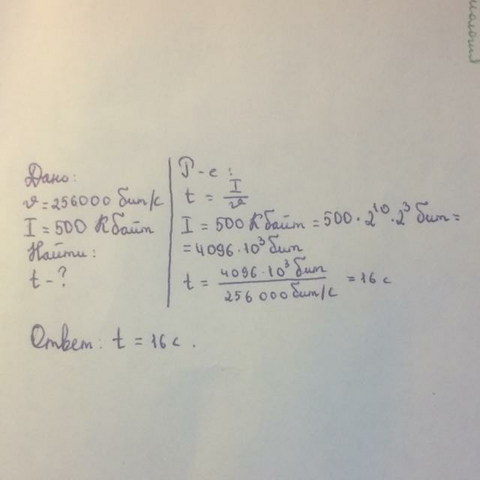 Дано:
υ = 256000 бит/с
I = 500 Кбайт
Найти:
t - ?
Р-е:
t = I/υ
I = 500 Кбайт = 500 · 2^10 · 2^3 бит =
= 4096 · 10^3 бит
t = 4096 · 10^3 бит / 256 000 бит/с = 16 с
Ответ: t = 16 с.